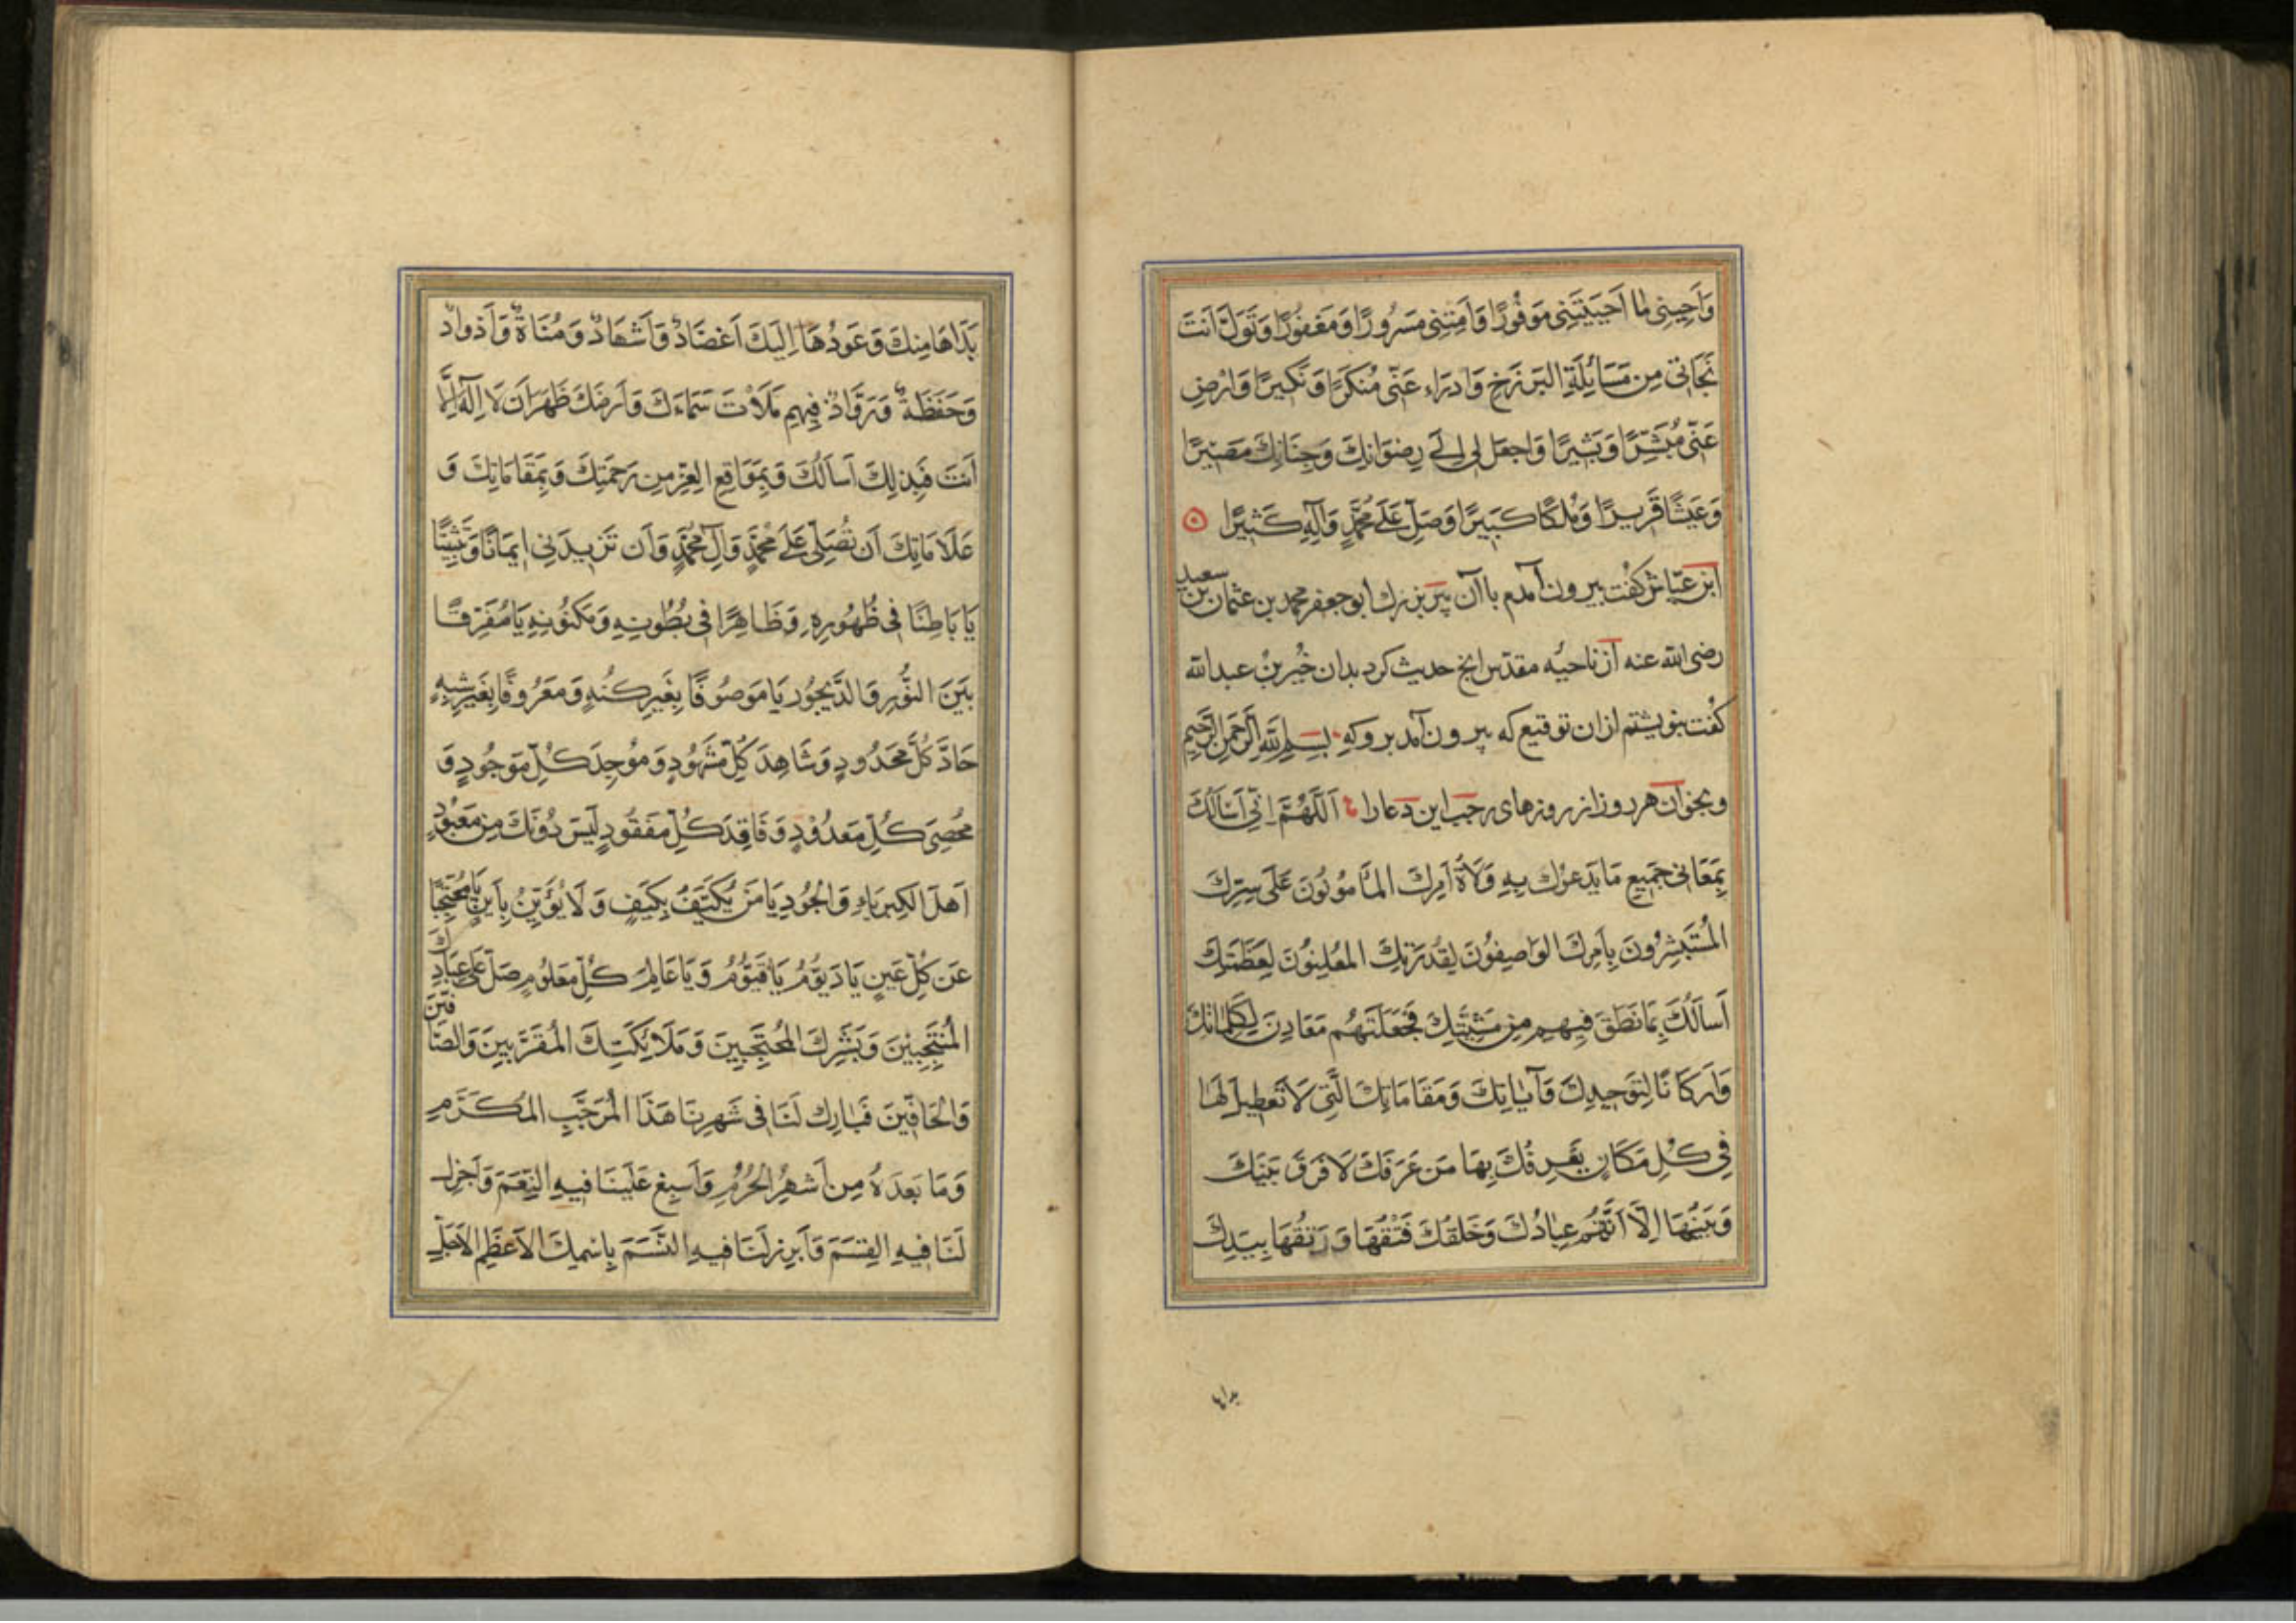 وَاَحيِنِى ما اَحيَيتَنِى مَوفُورًا وَاَمِتنِى مَسرُورًا وَمَغفُورًا وَتَوَلَّ اَنتَ
نَجَاتى مِن مَسَائِلَةِ البَرزَخِ وَادرَاء عَنّى مُنكَرًا وَنَكيرًا وَارْضِ
عَنّى مُبَشِّرًا وَبَشيرًا وَاجعَل لِى اِلى رِضوَانِكَ وَجِنَانِكَ مَصيرًا
وَعَيشًا قَريرًا وَمُلكًا كَبيرًا وَصَلِّ عَلى مُحَمَّدٍ وَآلِهِ كَثيرًا
ابن عيّاش كفت بيرون آمدم با آن پير بزرك ابو جعفر محمد بن عثمان بن سعيد
رضى الله عنه از ناحيه مقدس الخ حديث كرد بدان خير بن عبد الله
كفت بنويشتم ازان توقيع كه بيرون آمد بروكه بسم الله الرحمن الرحيم
وبخوان هر روز از روزهاى رجب اين دعا را اَللّهُمَّ اِنّى اَسْاَلُكَ
بِمَعَانى جَميعِ مَا يَدعُوكَ بِهِ وَلَاةُ اَمرِكَ المَأمُونُونَ عَلَى سِرِّكَ
المُستَبشِرُونَ بِاَمرِكَ الوَاصِفُونَ لِقُدرَتِكَ المُعلِنُونَ لِعَظَمَتِكَ
اَسأَلُكَ بِمَا نَطَقَ فيهِم مِن مَشِيَّتِكَ فَجَعَلتَهُم مَعَادِنَ لِكَلِمَاتِكَ
وَاَركَانًا لِتَوحيدِكَ وَآيَاتِكَ وَمَقَامَاتِكَ الَّتى لَا تَعطيلَ لَهَا
فى كُلِّ مَكَانٍ يَعرِفُكَ بِهَا مَن عَرَفَكَ لَا فَرقَ بَينَكَ
وَبَينَهَا اِلَّا اَنَّهُم عِبَادُكَ وَخَلقُكَ فَتقُهَا وَرَتقُهَا بِيَدِكَ
بداها
بَدَاهَا مِنكَ وَعَودُهَا اِلَيكَ اَعضَادٌ وَاَشهَادٌ وَمُنَاةٌ وَاَذوادٌ
وَحَفَظَةٌ وَرَوَّادٌ فيهِم مَلَأتَ سَمَاءَكَ وَاَرضَكَ ظَهَرَ اَن لَا اِلهَ اِلَّا
اَنتَ فَبِذلِكَ اَسأَلُكَ وَبِمَوَاقِعِ العِزِّ مِن رَحمَتِكَ وَبِمَقَامَاتِكَ وَ
عَلَامَاتِكَ اَن تُصَلّى عَلى مُحَمَّدٍ وَآلِ مُحَمَّدٍ وَاَن تَزيدَنى ايمَانًا وَتَثبيتًا
يَا بَاطِنًا فى ظُهُورِهِ وَظَاهِرًا فى بُطُونِهِ وَمَكنُونِهِ يَا مُفَرِّقًا
بَينَ النُّورِ وَالدَّيجُورِ يَا مَوصُوفًا بِغَيرِ كُنهٍ وَمَعرُوفًا بِغَيرِ شِبهٍ
حَادَّ كُلِّ مَحدُودٍ وَشَاهِدَ كُلِّ مَشهُودٍ وَمُوجِدَ كُلِّ مَوجُودٍ وَ
مُحصِىَ كُلِّ مَعدُودٍ وَفَاقِدَ كُلِّ مَفقُودٍ لَيسَ دُونَكَ مِن مَعبُودٍ
اَهلَ الكِبرِيَاءِ وَالجُودِ يَا مَن يُكَيَّفُ بِكَيفٍ وَلَا يُؤَيَّنُ بِاَينٍ يَا مُحتَجِبًا
عَن كُلِّ عَينٍ يَا دَيمُومُ يَا قَيُّومُ وَيَا عَالِمَ كُلِّ مَعلُومٍ صَلِّ عَلى عِبَادِكَ
المُنتَجَبينَ وَبَشَرِكَ المُحتَجِبينَ وَمَلَائِكَتِكَ المُقَرَّبينَ وَالصَّافّينَ
وَالحَافّينَ فَبَارِك لَنَا فى شَهرِنَا هَذَا المُرَجَّبِ المُكَرَّمِ
وَمَا بَعدَهُ مِن اَشهُرِ الحُرُمِ وَاَسبِغ عَلَينَا فيهِ النِّعَمَ وَاَجزِل
لَنَا فيهِ القِسَمَ وَاَبرِز لَنَا فيهِ القَسَمَ بِاسمِكَ الاَعظَمِ الاَجَلِّ